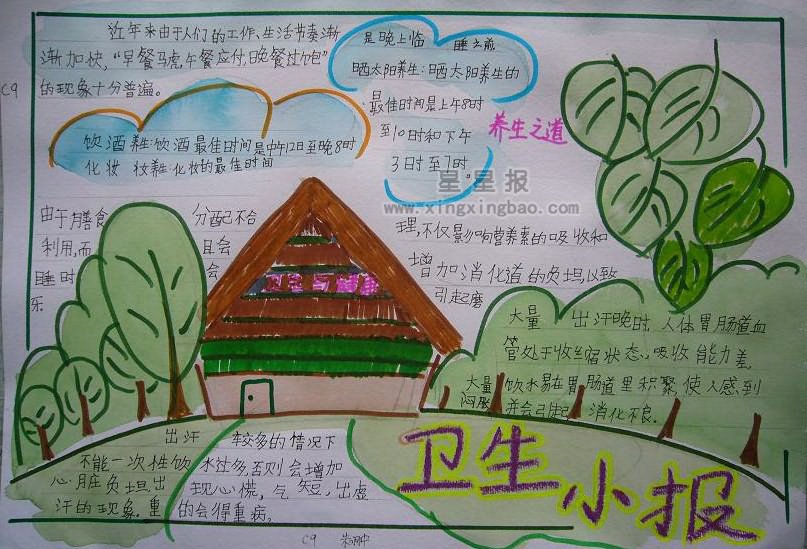 近年来由于人们的工作、生活节奏渐
渐加快，“早餐马虎，午餐应付，晚餐过饱”
的现象十分普遍。
C9
饮酒养生：饮酒最佳时间是中午12日至晚8时
化妆 妆养生：化妆的最佳时间
是晚上临 睡之前
晒太阳养生：晒太阳养生的
最佳时间是上午8时
至10时和下午
3日时至7时。
养生之道
星星报
www.xingxingbao.com
由于膳食 分配不合
理，不仅影响营养素的吸收和
利用，而 且会
增加消化道的负担以致
睡时 会
引起磨
卫生与健康
大量 出汗晚时，人体胃肠道血
管处于收缩状态，吸收能力差，
大量 饮水易在胃肠道里积聚，使人感到
闷胀 并会引起 消化不良。
出汗 较多的情况下
不能一次性饮 水过多，否则会增加
心脏负担出 现心慌，气短，出虚
汗的现象，重 的会得重病。
卫生
小报
C9